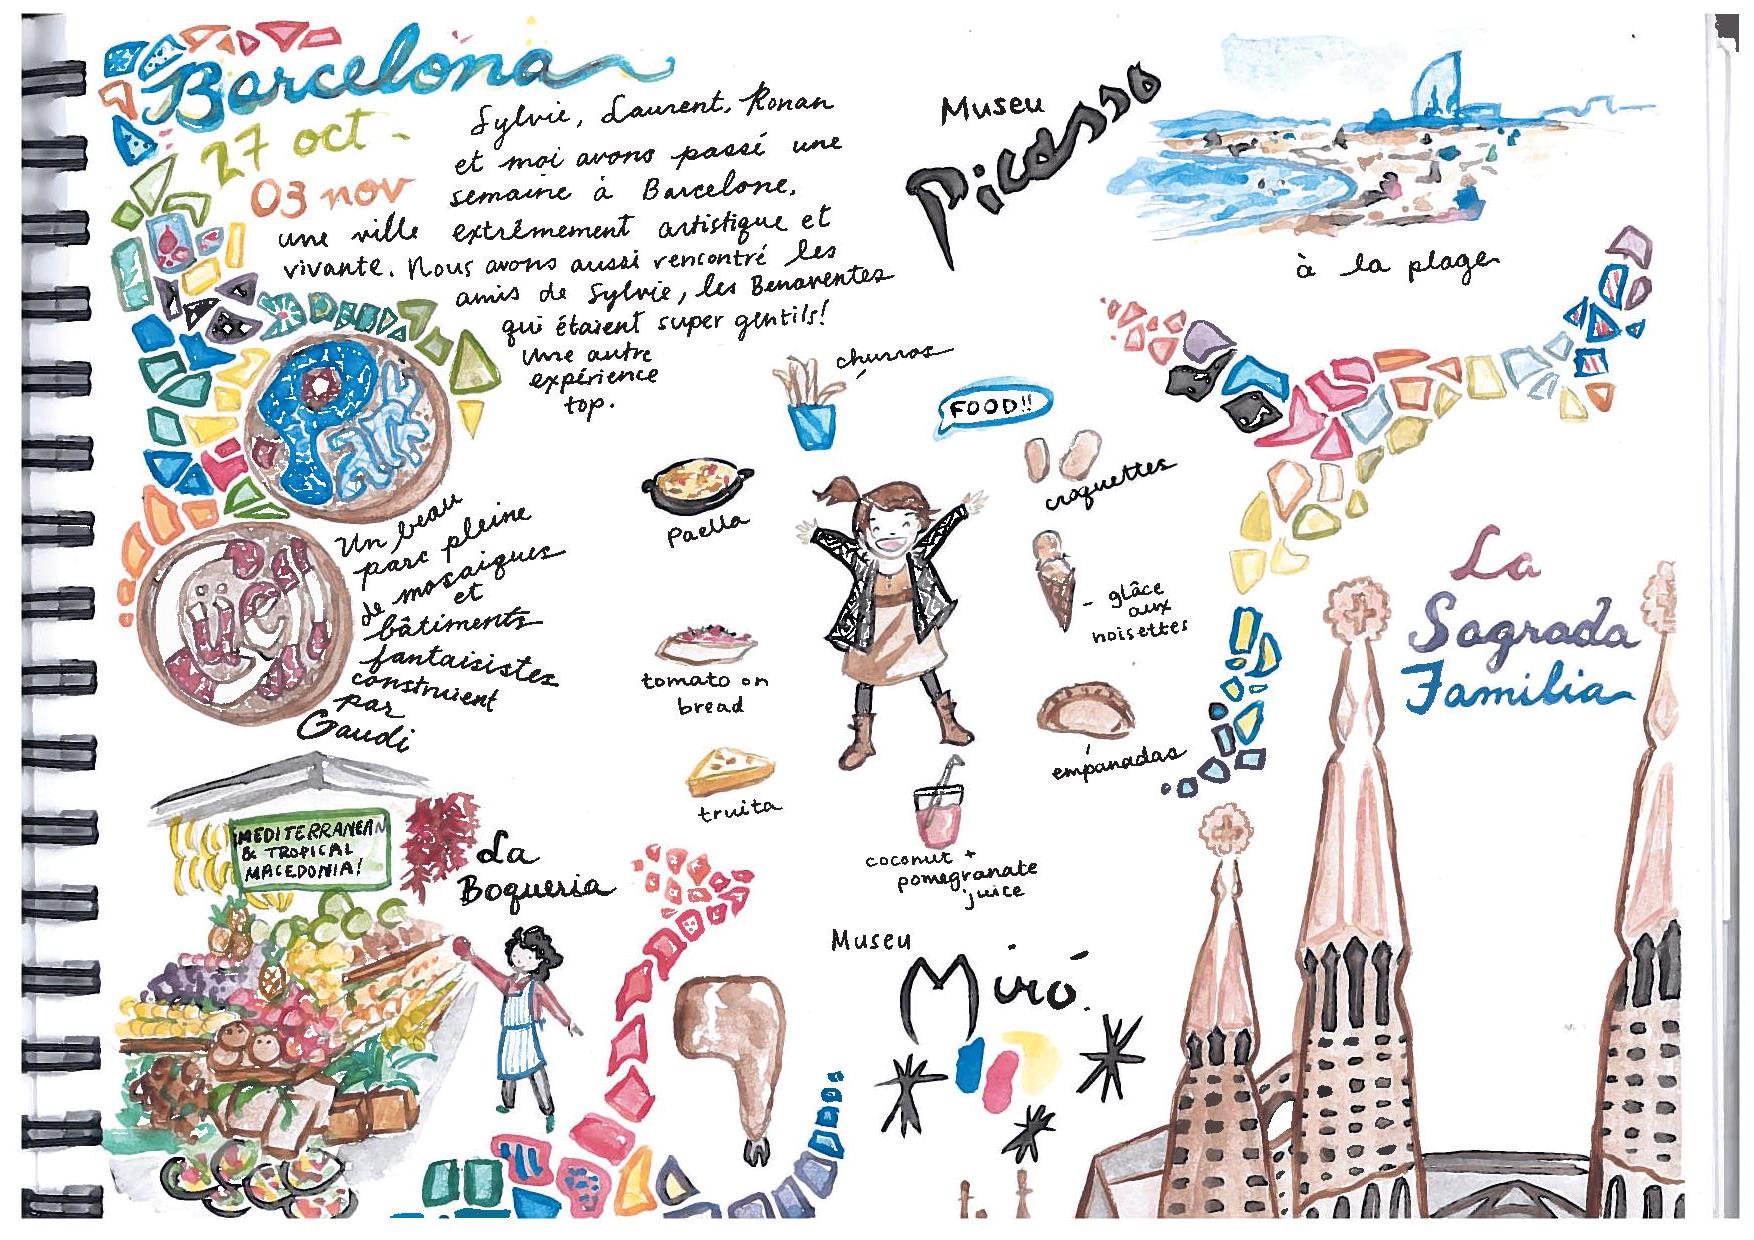 Barcelona
27 oct -
03 nov
Sylvie, Laurent, Ronan
et moi avons passé une
semaine à Barcelone,
une ville extrêmement artistique et
vivante. Nous avons aussi rencontré les
amis de Sylvie, les Benaventes
qui étaient super gentils!
Une autre
expérience
top.
Museu
Picasso
à la plage
churros
FOOD!!
croquettes
Paella
- glâce
aux
noisettes
tomato on
bread
empanadas
truita
coconut +
pomegranate
juice
Un beau
parc pleine
de mosaiques
et
bâtiments
fantaisistes
construient
par
Gaudi
La
Sagrada
Familia
MEDITERRANEAN
& TROPICAL
MACEDONIA!
La
Boqueria
Museu
Miró